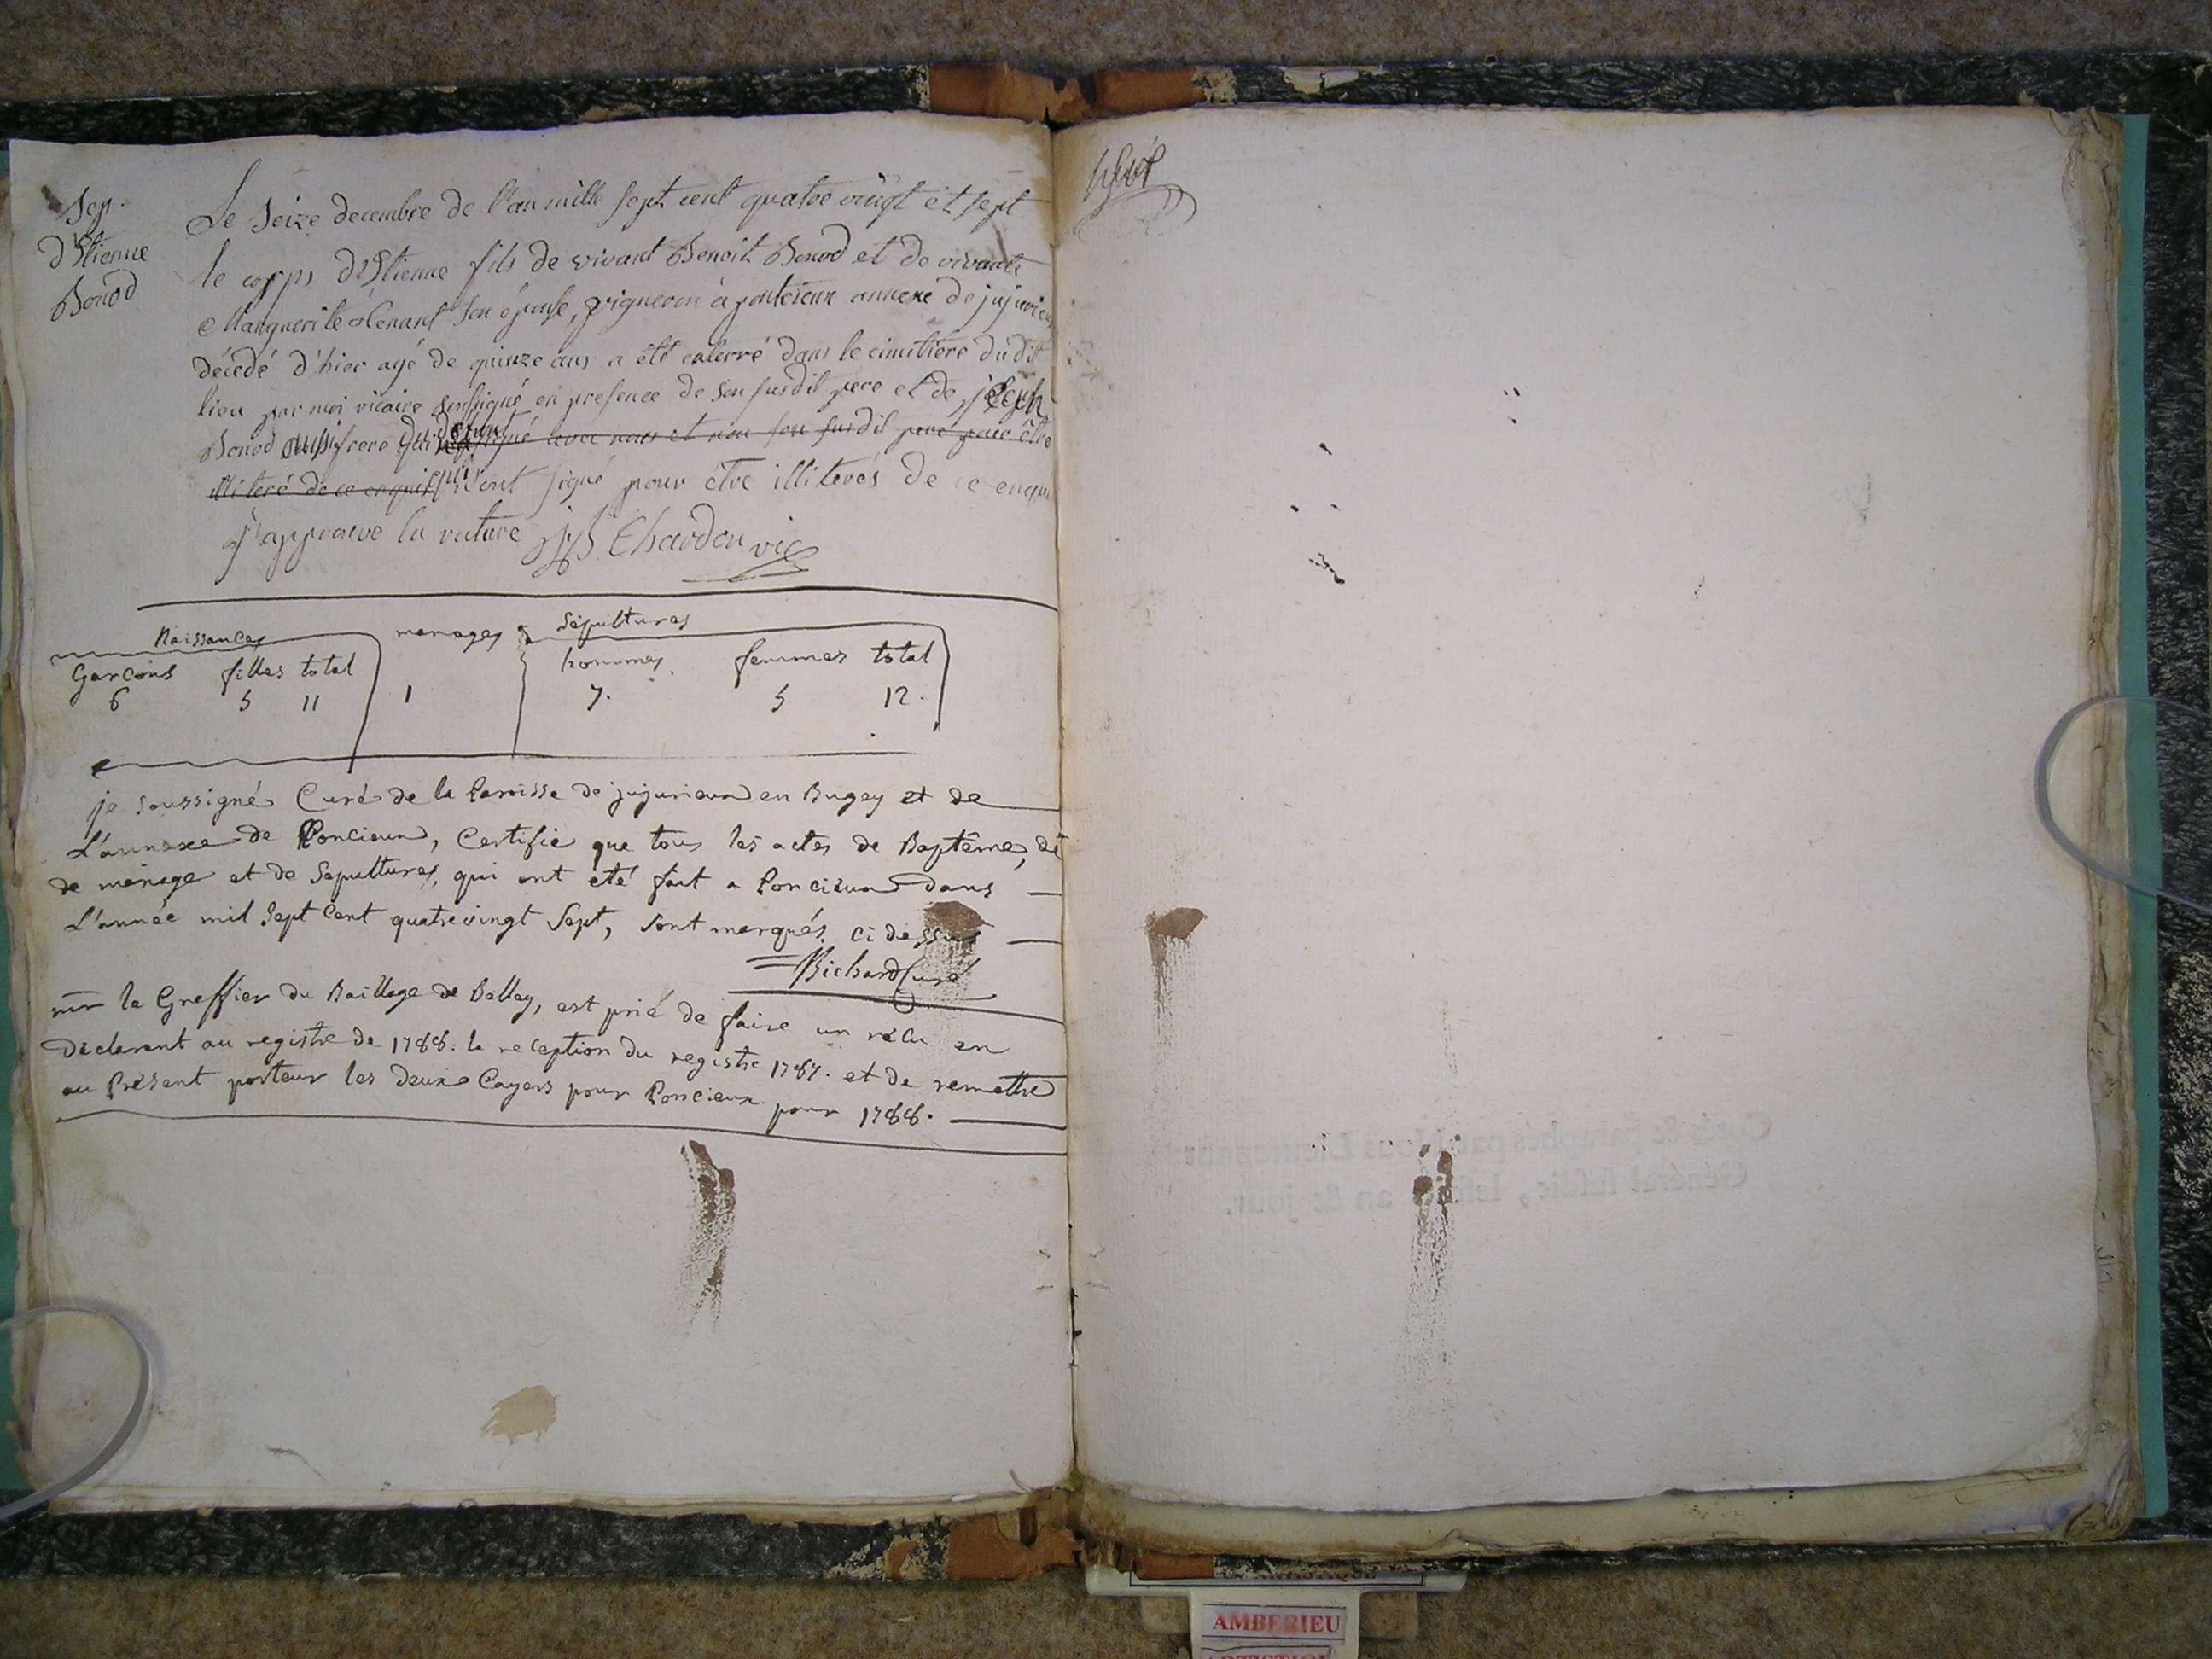 Sep.
d'Etienne
Bonod
Le Seize decembre de l'an mille sept cent quatre vingt et sept
le corps d'Etienne fils de vivant Benoit Bonod et de vivante
Marguerite son épouse, vigneron à poncieux annexe de jujurieux
décédé d'hier agé de quinze ans a été enterré dans le cimetière du dit
lieu par moi vicaire soussigné en presence de son susdit pere et de joseph
Bonod aussi frere qui signé avec nous et non son susdit pere pour être
illiteré de ce enquis n'ont signé pour être illiterés de ce enquis
j'approuve la rature JB Chardon vic
Naissances mariages Sépultures
Garçons filles total hommes femmes total
6 5 11 1 7. 5 12.
je soussigné Curé de la Paroisse de jujurieux en Bugey et de
L'annexe de Poncieux, Certifie que tous les actes de Baptême, de
de mariage et de Sepultures, qui ont eté fait a Poncieux dans
L'année mil Sept Cent quatrevingt Sept, sont marqués ci dessus
Richard Curé
mr le Greffier du Baillage de Belley, est prié de faire un recu en
Declarant au registre de 1788. la reception du registre 1787. et de remettre
au Présent porteur les deux Cayers pour Poncieux pour 1788.
Cotés & paraphés par Nous Lieutenant
Général susdit, lesdits an & jour.
AMBERIEU